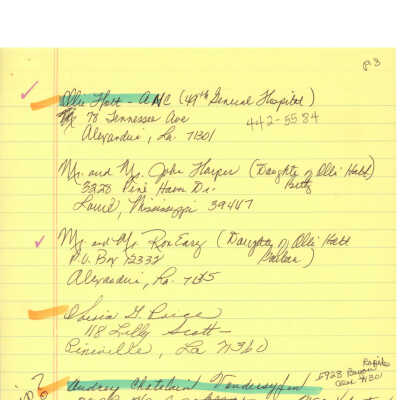 p 3
Olli Hatt - ANC (49th General Hospital)
78 Tennessee Ave 442-5584
Alexandria, La. 71301
Mr. and Mrs. John Harper (Daughter of Olli Hatt)
3228 Pine Haven Dr. Betty
Laurel, Mississippi 39447
Mr. and Mrs. Ron Easy (Daughter of Olli Hatt
P.O. Box 12332
Alexandria, La.
G. Paige
118 Lilly Scott
Pineville, La 71360
Audrey Chatelain Vandersypen
5928
71301